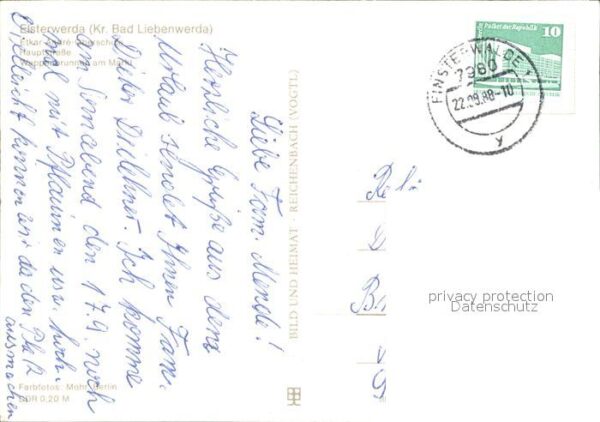 Elsterwerda (Kr. Bad Liebenwerda)
Hauptstraße
Wappenbrunnen am Markt
Liebe Fam. Mende!
Herzliche Grüße aus dem
Urlaub sendet Ihnen Fam.
Dieter Ich komme
am Sonnabend den 17.9. noch
mal mit Pflaumen usw. hoch.
Vielleicht können wir da den Platz
ausmachen
Farbfotos: Mohr, Berlin
DDR 0,20 M
BILD UND HEIMAT REICHENBACH (VOGTL)
Palast der Republik
10
FINSTERWALDE 1
7980
22.09.88-10
y
privacy protection
Datenschutz